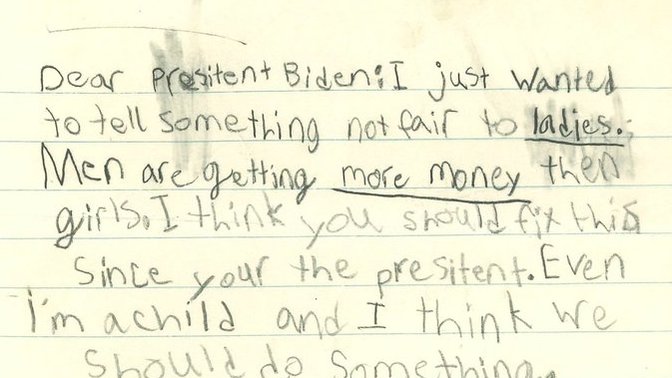 Dear presitent Biden: I just wanted
to tell something not fair to ladies.
Men are getting more money then
girls. I think you should fix this
since your the presitent. Even
I'm a child and I think we
should do something.